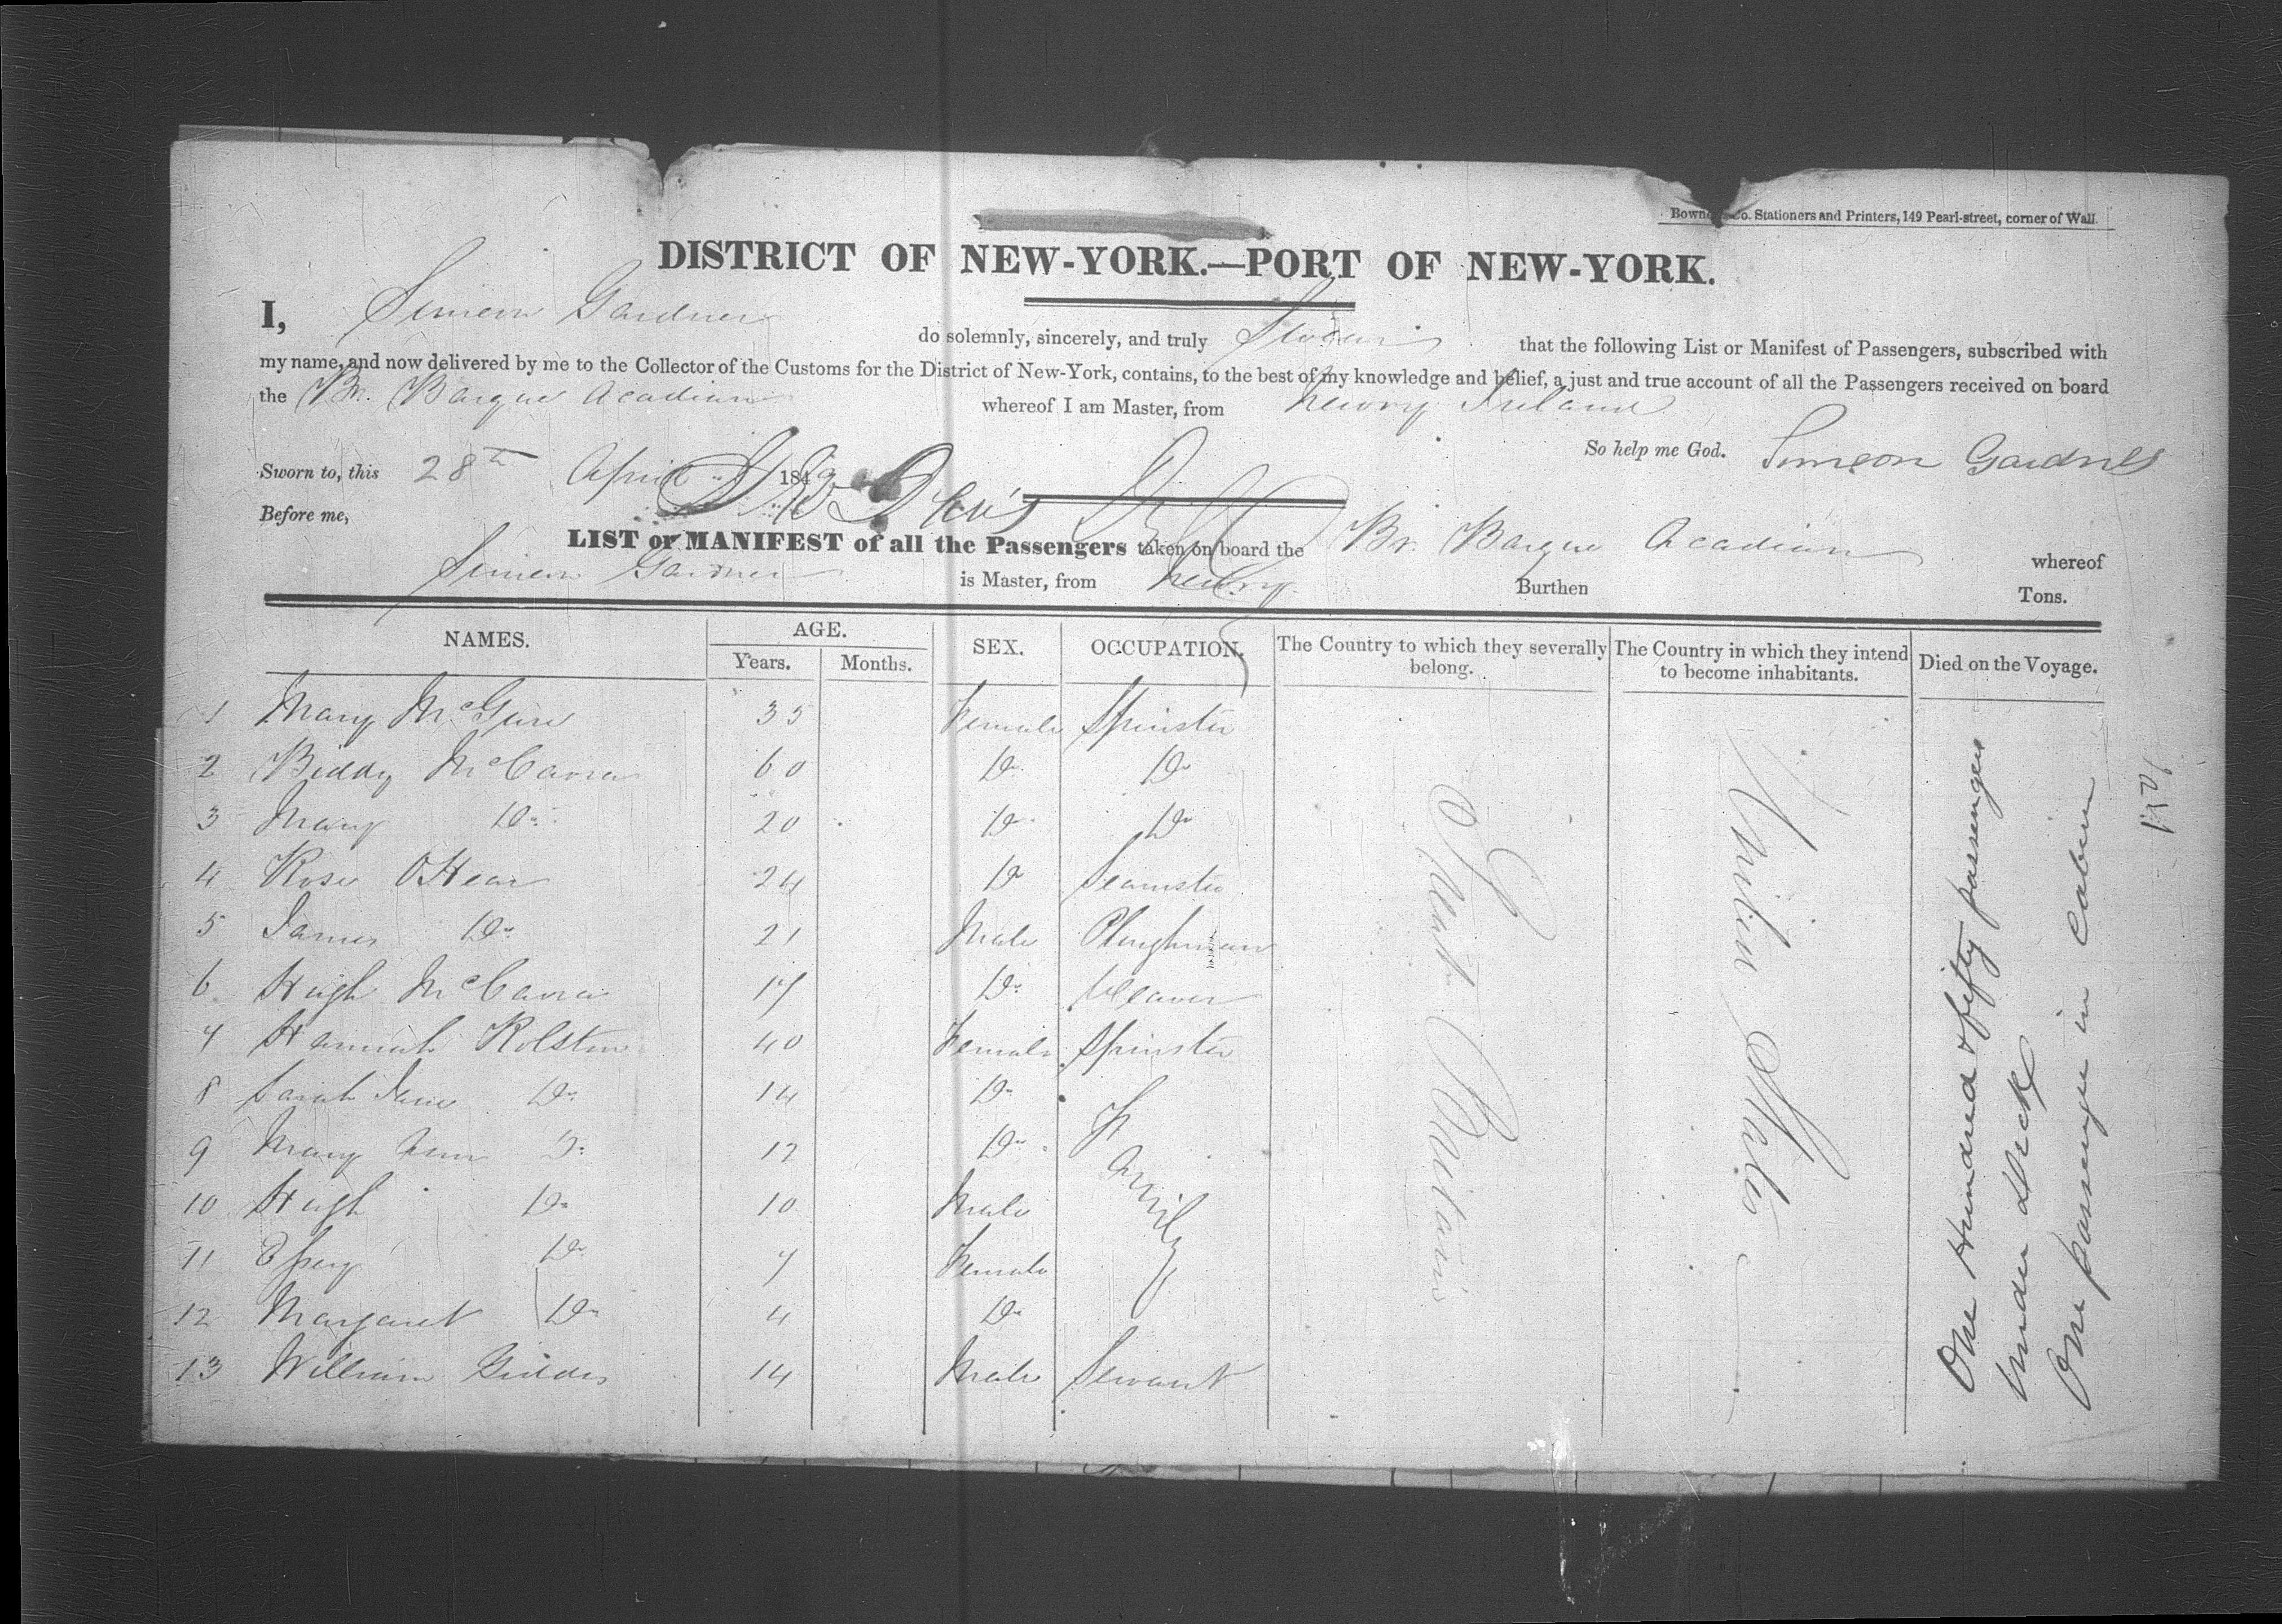 Bowne & Co. Stationers and Printers, 149 Pearl-street, corner of Wall.
DISTRICT OF NEW-YORK.—PORT OF NEW-YORK.
I, Simeon Gardner do solemnly, sincerely, and truly Swear that the following List or Manifest of Passengers, subscribed with
my name, and now delivered by me to the Collector of the Customs for the District of New-York, contains, to the best of my knowledge and belief, a just and true account of all the Passengers received on board
the Br. Barque Acadian whereof I am Master, from Newry Ireland
So help me God. Simeon Gardner
Sworn to, this 28th April 184
Before me,
LIST or MANIFEST of all the Passengers taken on board the Br. Barque Acadian whereof
Simeon Gardner is Master, from Newry Burthen Tons.
NAMES. AGE. SEX. OCCUPATION. The Country to which they severally belong. The Country in which they intend to become inhabitants. Died on the Voyage.
Years. Months.
1 Mary McGuire 35 Female Spinster
2 Biddy McCavra 60 Do Do
3 Mary Do 20 Do Do
4 Rose OHear 24 Do Seamster
5 James Do 21 Male Ploughman
6 Hugh McCavra 17 Do Weaver
7 Hannah Rolston 40 Female Spinster
8 Sarah Jane Do 14 Do
9 Mary Ann Do 12 Do
10 Hugh Do 10 Male
11 Do 7 Female
12 Margaret Do 4 Do
13 William 14 Male Servant
Family
Great Britain
United States
One Hundred & fifty passengers
under deck
One passenger in Cabin